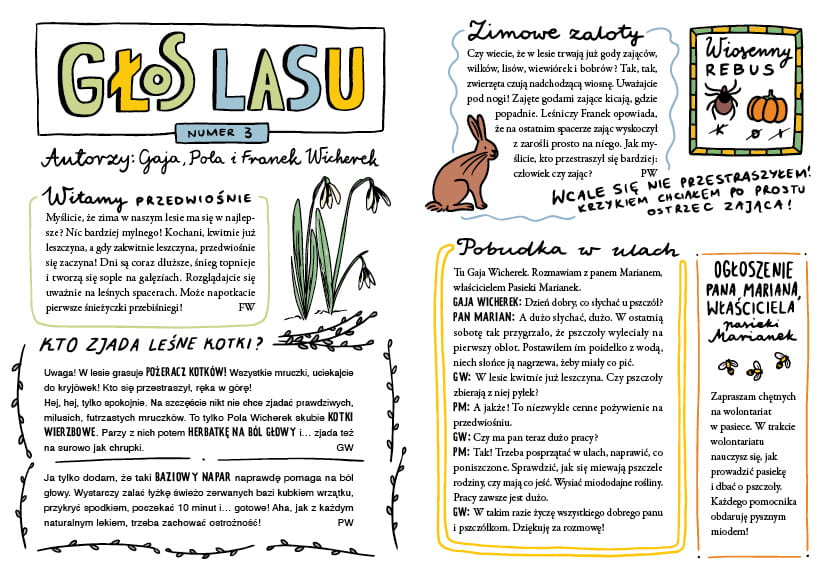 GŁOS LASU
NUMER 3
Autorzy: Gaja, Pola i Franek Wicherek
Witamy PRZEDWIOŚNIE
Myślicie, że zima w naszym lesie ma się w najlep-
sze? Nic bardziej mylnego! Kochani, kwitnie już
leszczyna, a gdy zakwitnie leszczyna, przedwiośnie
się zaczyna! Dni są coraz dłuższe, śnieg topnieje
i tworzą się sople na gałęziach. Rozglądajcie się
uważnie na leśnych spacerach. Może napotkacie
pierwsze śnieżyczki przebiśniegi! FW
KTO ZJADA LEŚNE KOTKI?
Uwaga! W lesie grasuje POŻERACZ KOTKÓW! Wszystkie mruczki, uciekajcie
do kryjówek! Kto się przestraszył, ręka w górę!
Hej, hej, tylko spokojnie. Na szczęście nikt nie chce zjadać prawdziwych,
milusich, futrzastych mruczków. To tylko Pola Wicherek skubie KOTKI
WIERZBOWE. Parzy z nich potem HERBATKĘ NA BÓL GŁOWY i... zjada też
na surowo jak chrupki. GW
Ja tylko dodam, że taki BAZIOWY NAPAR naprawdę pomaga na ból
głowy. Wystarczy zalać łyżkę świeżo zerwanych bazi kubkiem wrzątku,
przykryć spodkiem, poczekać 10 minut i... gotowe! Aha, jak z każdym
naturalnym lekiem, trzeba zachować ostrożność! PW
Zimowe zaloty
Czy wiecie, że w lesie trwają już gody zajęców,
wilków, lisów, wiewiórek i bobrów? Tak, tak,
zwierzęta czują nadchodzącą wiosnę. Uważajcie
pod nogi! Zajęte godami zające kicają, gdzie
popadnie. Leśniczy Franek opowiada,
że na ostatnim spacerze zając wyskoczył
z zarośli prosto na niego. Jak my-
ślicie, kto przestraszył się bardziej:
człowiek czy zając? PW
WCALE SIĘ NIE PRZESTRASZYŁEM!
KRZYKIEM CHCIAŁEM PO PROSTU
OSTRZEC ZAJĄCA!
Wiosenny
REBUS
Pobudka w ulach
Tu Gaja Wicherek. Rozmawiam z panem Marianem,
właścicielem Pasieki Marianek.
GAJA WICHEREK: Dzień dobry, co słychać u pszczół?
PAN MARIAN: A dużo słychać, dużo. W ostatnią
sobotę tak przygrzało, że pszczoły wyleciały na
pierwszy oblot. Postawiłem im poidełko z wodą,
niech słońce ją nagrzewa, żeby miały co pić.
GW: W lesie kwitnie już leszczyna. Czy pszczoły
zbierają z niej pyłek?
PM: A jakże! To niezwykle cenne pożywienie na
przedwiośniu.
GW: Czy ma pan teraz dużo pracy?
PM: Tak! Trzeba posprzątać w ulach, naprawić, co
poniszczone. Sprawdzić, jak się miewają pszczele
rodziny, czy mają co jeść. Wysiać miododajne rośliny.
Pracy zawsze jest dużo.
GW: W takim razie życzę wszystkiego dobrego panu
i pszczółkom. Dziękuję za rozmowę!
OGŁOSZENIE
PANA MARIANA,
WŁAŚCICIELA
pasieki
Marianek
Zapraszam chętnych
na wolontariat
w pasiece. W trakcie
wolontariatu
nauczysz się, jak
prowadzić pasiekę
i dbać o pszczoły.
Każdego pomocnika
obdaruję pysznym
miodem!